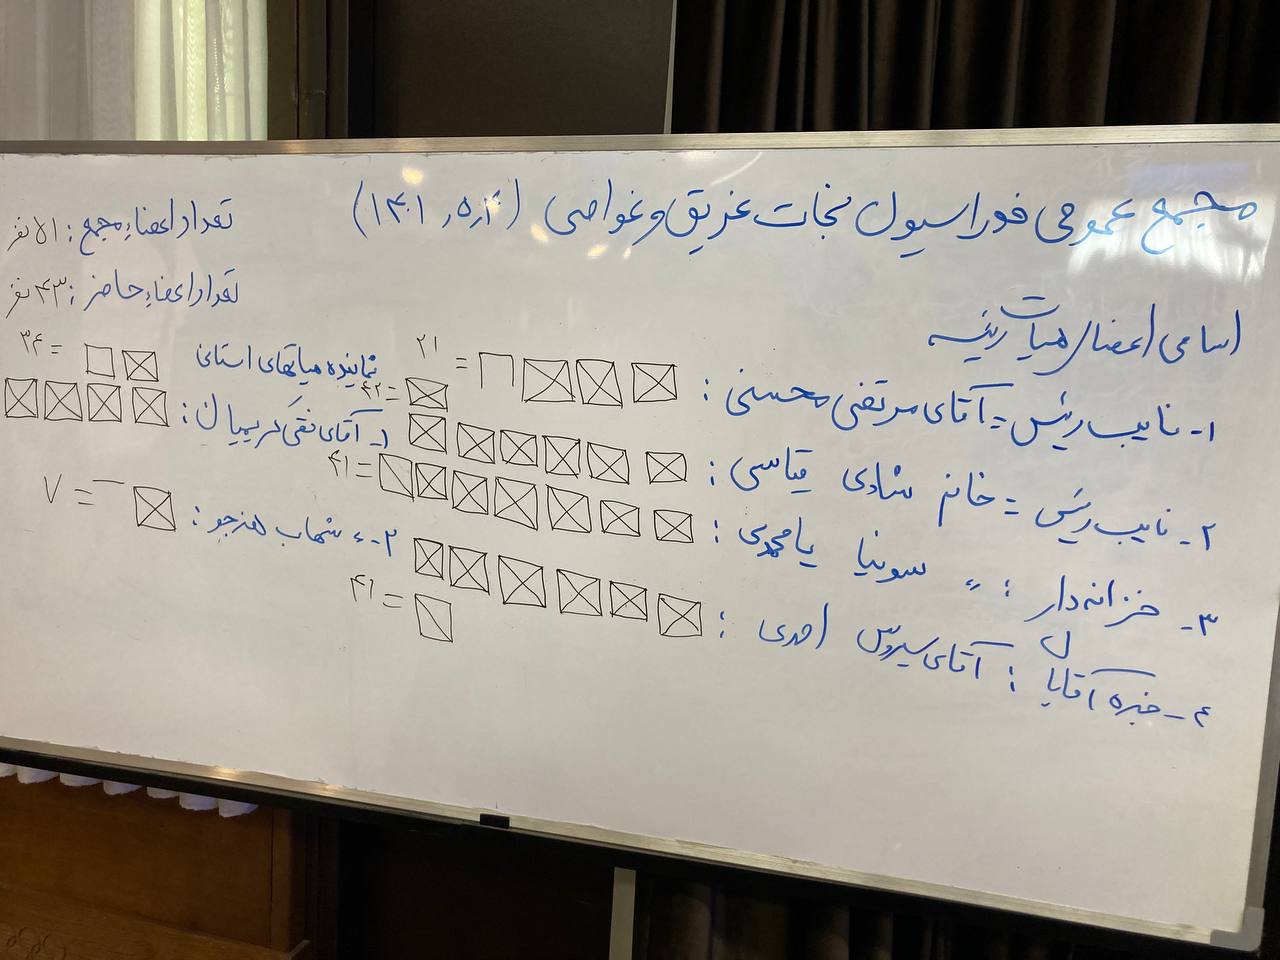 مجمع عمومی فدراسیون نجات غریق و غواصی (۱۴۰۱٫۵٫۴)
تعداد اعضاء مجمع : ۵۱ نفر
تعداد اعضاء حاضر : ۴۳ نفر
اسامی اعضای هیات رئیسه
۱- نایب رئیس = آقای مرتضی محسنی : = ۲۱
۲- نایب رئیس = خانم شادی قیاسی : = ۴۲
۳- خزانه دار : 〃 سونیا یامحمدی : = ۴۱
۴- خبره آقایان : آقای سیروس احمدی : = ۴۱
نماینده هیاتهای استانی
۱- آقای نقی کریمیان : = ۳۴
۲- 〃 شهاب هنرجو : = ۷